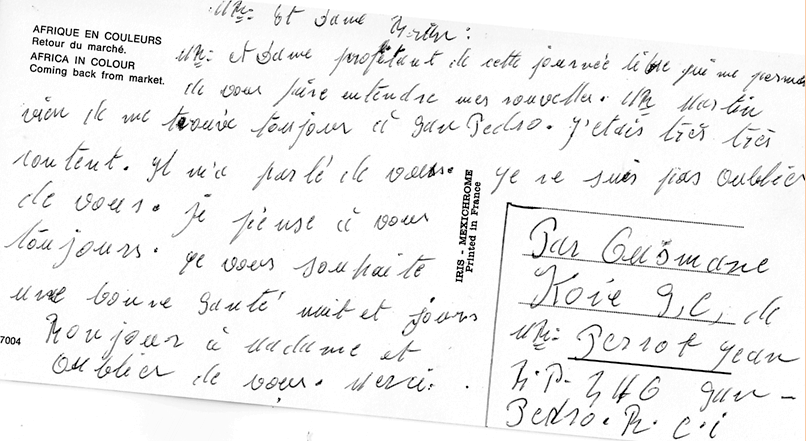 AFRIQUE EN COULEURS
Retour du marché.
AFRICA IN COLOUR
Coming back from market.
Mr= et Dame
Mr= et Dame profitant de cette journée libre qui me permet
de vous faire entendre mes nouvelles. Mr Martin
vien de me trouvé toujour à San Pedro. j'etais très très
content. Il m'a parlé de vous. Je ne suis pas oublier
de vous. je pense à vous
toujours. Je vous souhaite
une bonne santé nuit et jours
Bonjour à Madame et
oublier de vous. Merci.
7004
IRIS - MEXICHROME
Printed in France
Par Ousmane
Koie S,C, de
Mr= Perrot Jean
B.P. San-
Pedro. R. C.i